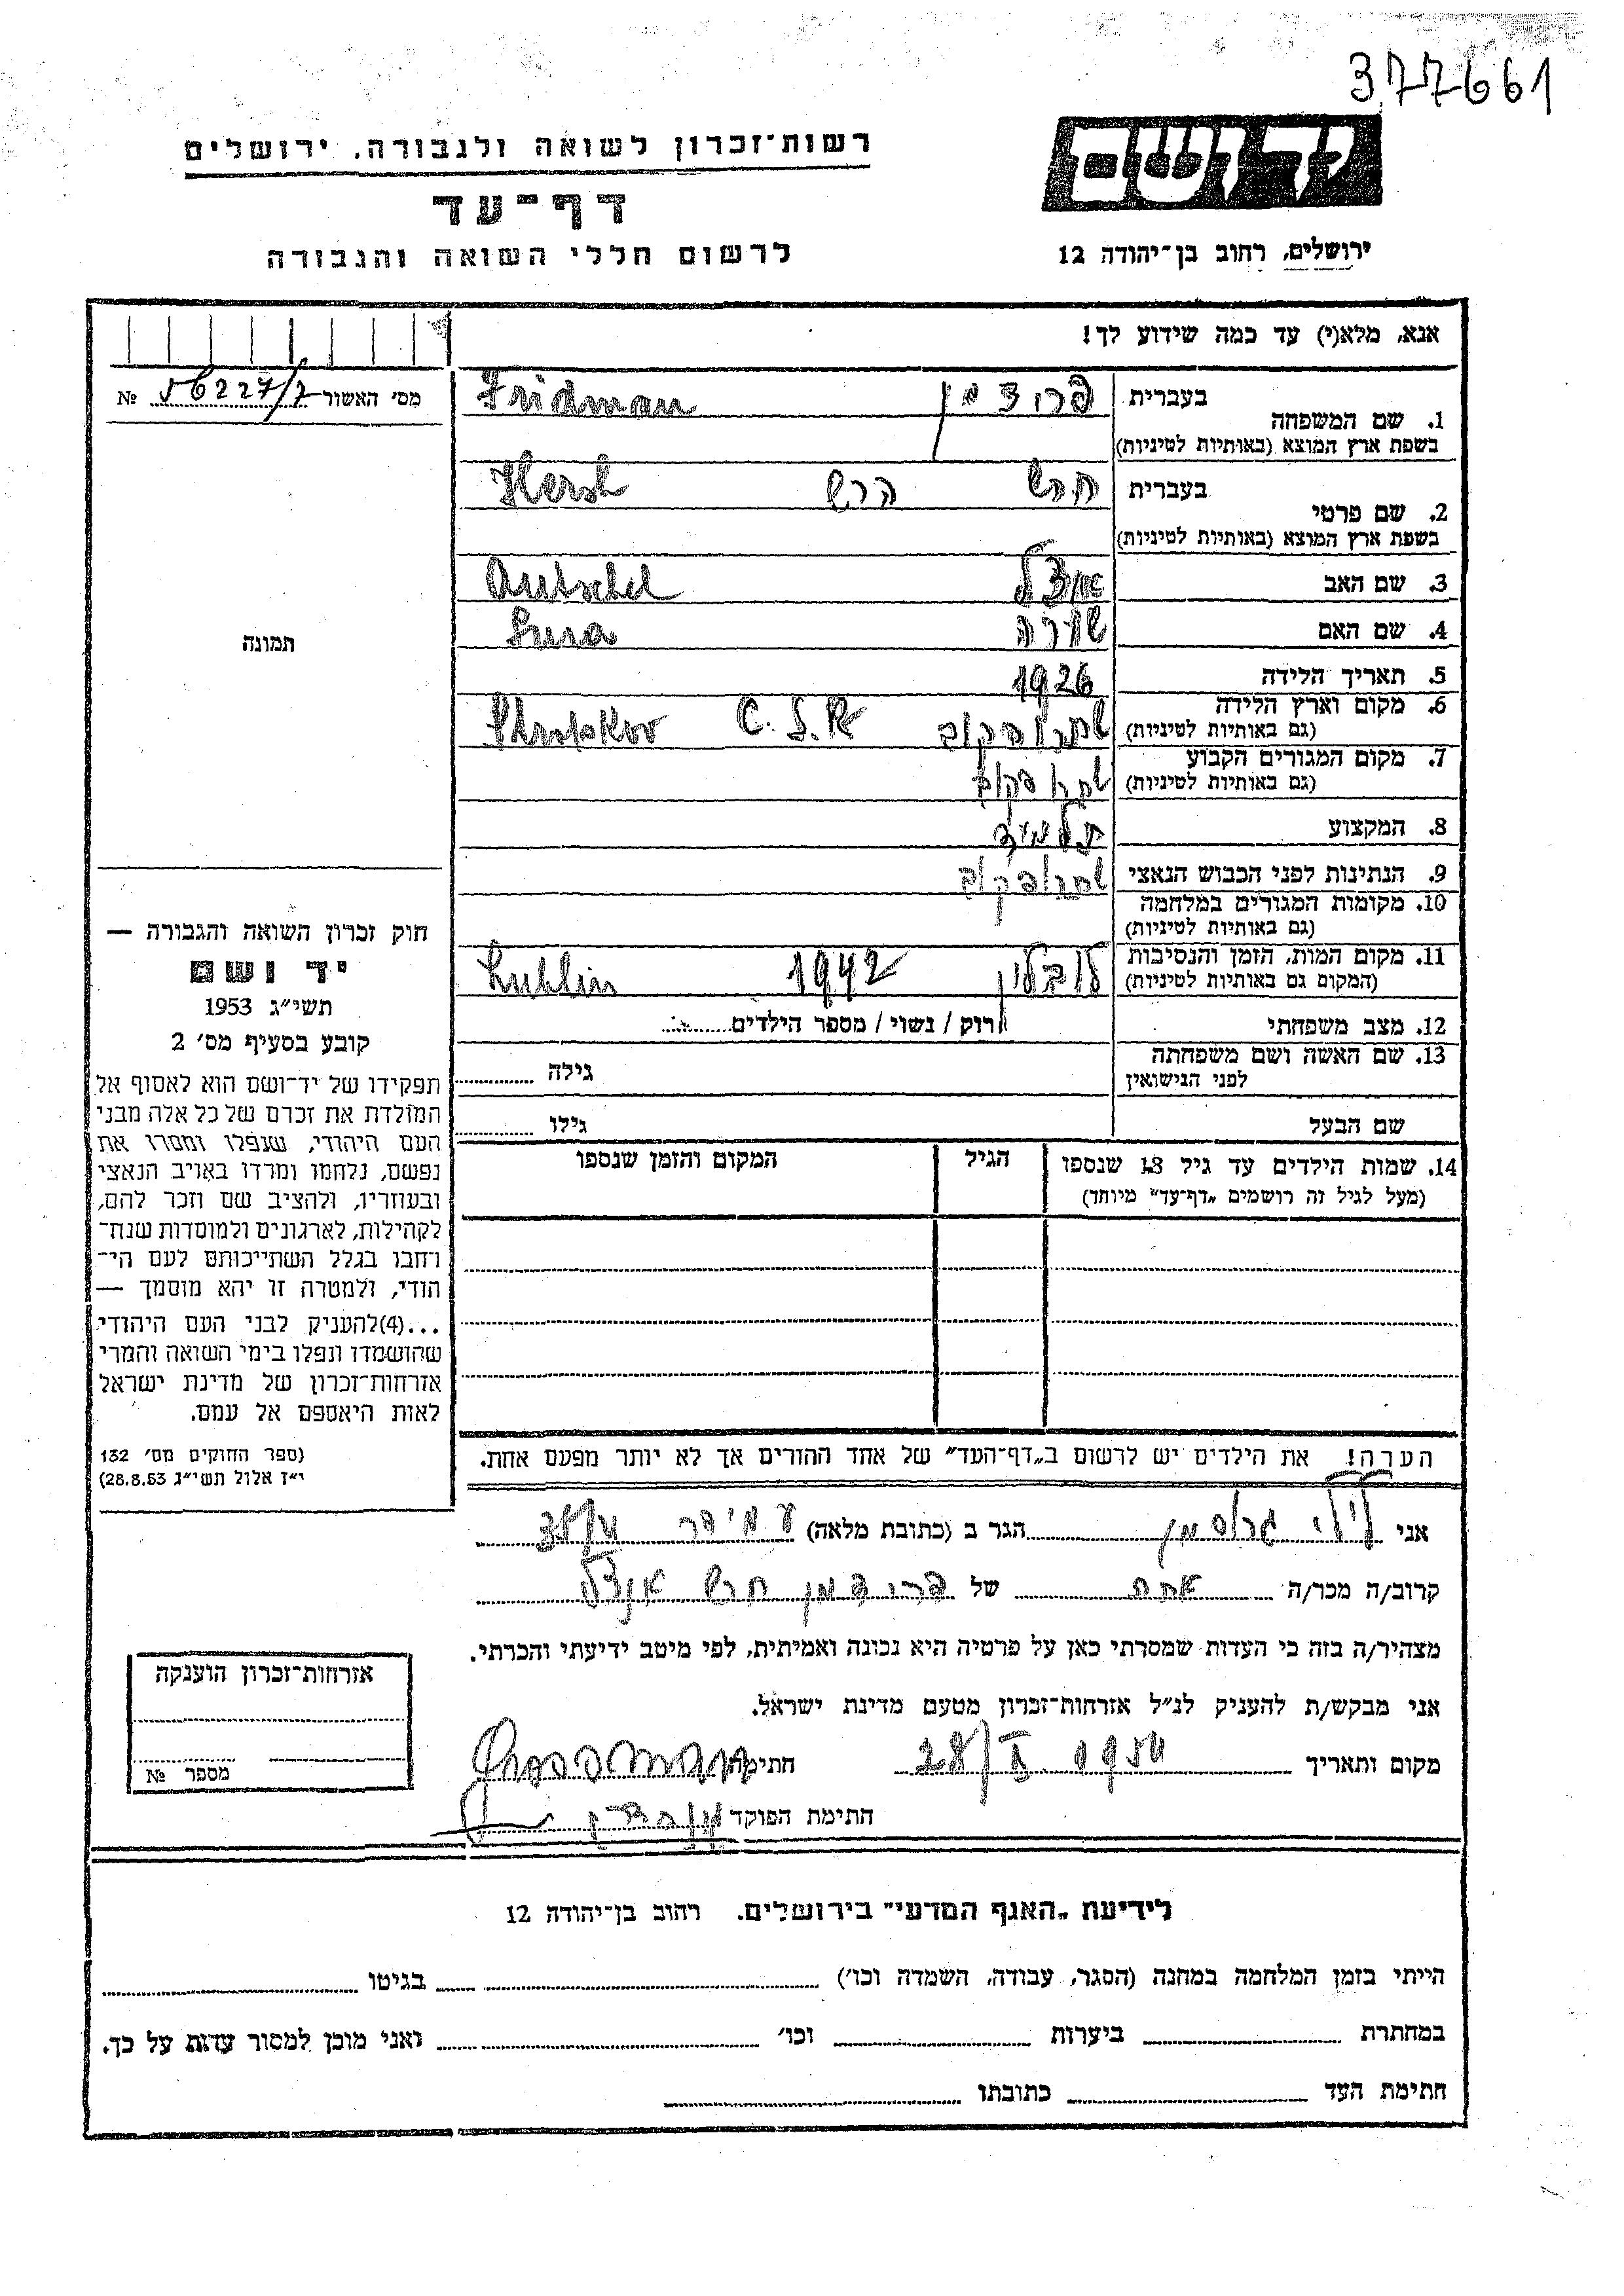 377661
יד ושם
ירושלים, רחוב בן־יהודה 12
רשות־זכרון לשואה ולגבורה, ירושלים
דף־עד
לרשום חללי השואה והגבורה
אנא, מלא(י) עד כמה שידוע לך!
מס׳ האשור 56227/7 №
1. שם המשפחה בעברית פרידמן Fridman
בשפת ארץ המוצא (באותיות לטיניות)
2. שם פרטי בעברית הרש Hersh
בשפת ארץ המוצא (באותיות לטיניות)
3. שם האב
4. שם האם שרה Sura
5. תאריך הלידה 1926
6. מקום וארץ הלידה C.S.R
(גם באותיות לטיניות)
7. מקום המגורים הקבוע
(גם באותיות לטיניות)
8. המקצוע תלמיד
9. הנתינות לפני הכבוש הנאצי
10. מקומות המגורים במלחמה
(גם באותיות לטיניות)
11. מקום המות, הזמן והנסיבות לובלין 1942 Lublin
(המקום גם באותיות לטיניות)
12. מצב משפחתי רוק / נשוי / מספר הילדים
13. שם האשה ושם משפחתה גילה
לפני הנישואין
שם הבעל גילו
14. שמות הילדים עד גיל 18 שנספו הגיל המקום והזמן שנספו
(מעל לגיל זה רושמים „דף־עד״ מיוחד)
תמונה
חוק זכרון השואה והגבורה —
יד ושם
תשי״ג 1953
קובע בסעיף מס׳ 2
תפקידו של יד־ושם הוא לאסוף אל
המולדת את זכרם של כל אלה מבני
העם היהודי, שנפלו ומסרו את
נפשם, נלחמו ומרדו באויב הנאצי
ובעוזריו, ולהציב שם וזכר להם,
לקהילות, לארגונים ולמוסדות שנח־
רחבו בגלל השתייכותם לעם הי־
הודי, ולמטרה זו יהא מוסמך —
...(4)להעניק לבני העם היהודי
שהושמדו ונפלו בימי השואה והמרי
אזרחות־זכרון של מדינת ישראל
לאות היאספם אל עמם.
(ספר החוקים מס׳ 132
י״ז אלול תשי״ג 28.8.53)
הערה! את הילדים יש לרשום ב„דף־העד״ של אחד ההורים אך לא יותר מפעם אחת.
אני לילי גרוסמן הגר ב (כתובת מלאה) עמידר
קרוב/ה מכר/ה של פרידמן
מצהיר/ה בזה כי העדות שמסרתי כאן על פרטיה היא נכונה ואמיתית, לפי מיטב ידיעתי והכרתי.
אני מבקש/ת להעניק לנ״ל אזרחות־זכרון מטעם מדינת ישראל.
מקום ותאריך חתימה Grossman
חתימת הפוקד
אזרחות־זכרון הוענקה
מספר №
לידיעת „האגף המדעי״ בירושלים, רחוב בן־יהודה 12
הייתי בזמן המלחמה במחנה (הסגר, עבודה, השמדה וכו׳) בגיטו
במחתרת ביערות וכו׳ ואני מוכן למסור עדות על כך.
חתימת העד כתובתו